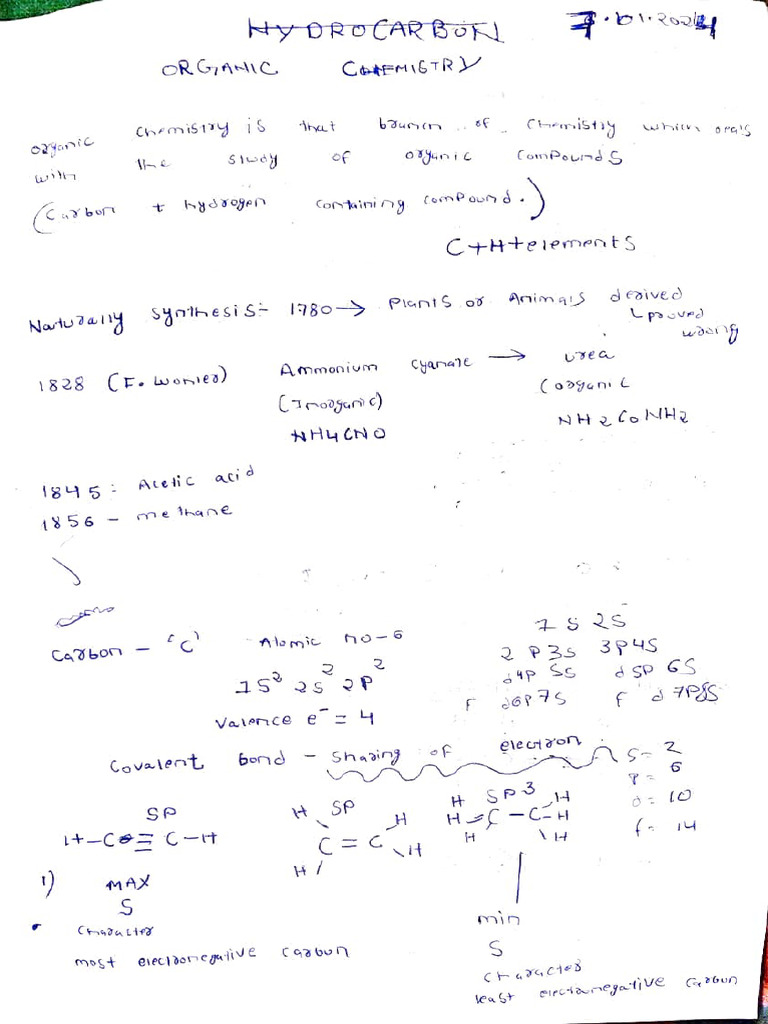 HYDROCARBON 7.01.2024
ORGANIC CHEMISTRY
organic chemistry is that branch of chemistry which deals
with the study of organic compounds
(Carbon + hydrogen containing compound.)
C+H+elements
Naturally synthesis:- 1780 → Plants or Animals derived
↳ proved
wrong
1828 (F. Wohler) Ammonium cyanate → urea
(Inorganic) (organic
NH4CNO NH2CONH2
1845: Acetic acid
1856 - methane
Carbon - 'C' Atomic no-6
1S² 2S² 2P²
Valence e⁻ = 4
1S 2S
2P3S 3P4S
d4P 5S d5P 6S
F d6P7S F d7P8S
Covalent bond - sharing of electron
S= 2
P= 6
d= 10
f= 14
SP
H-C≡C-H
SP
H H
C=C
H H
SP3
H H
H-C-C-H
H H
1) MAX
S
• character
most electronegative carbon
min
S
character
least electronegative carbon